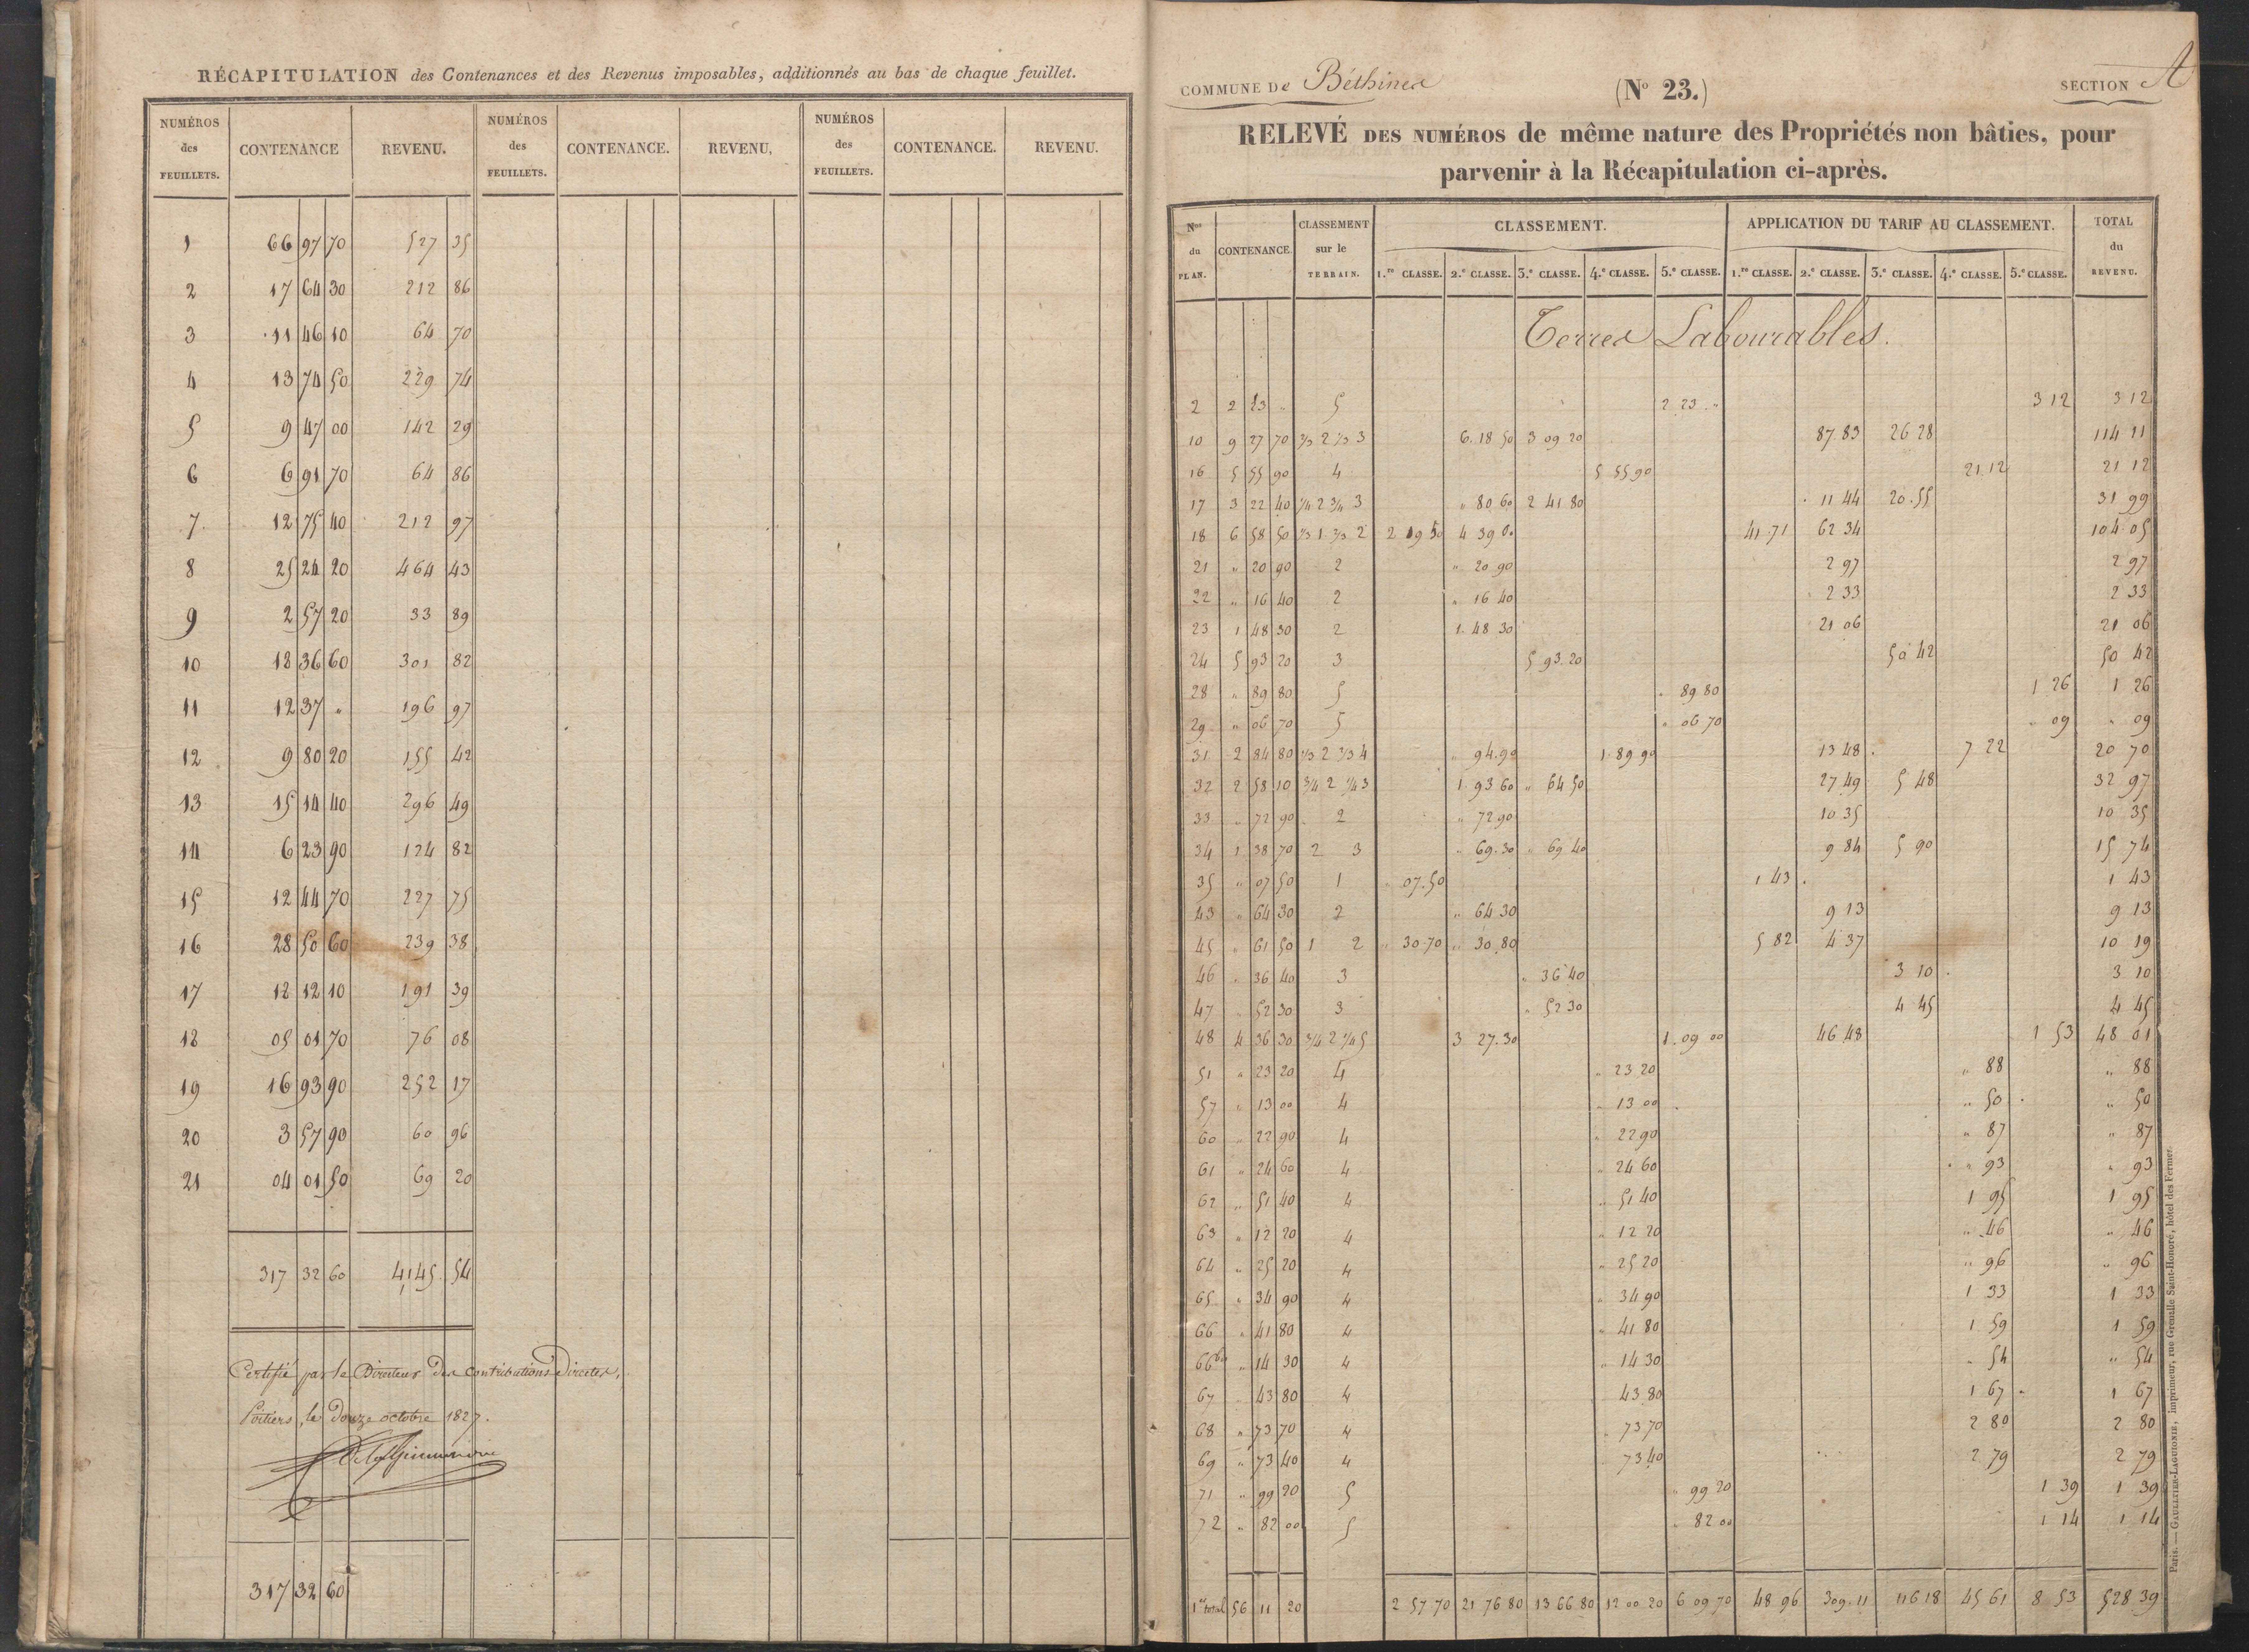 RÉCAPITULATION des Contenances et des Revenus imposables, additionnés au bas de chaque feuillet.
NUMÉROS des FEUILLETS. CONTENANCE REVENU. NUMÉROS des FEUILLETS. CONTENANCE. REVENU, NUMÉROS des FEUILLETS. CONTENANCE. REVENU.
1 66 97 70 527 35
2 17 64 30 212 86
3 11 46 10 64 70
4 13 74 50 229 74
5 9 47 00 142 29
6 6 91 70 64 86
7 12 75 40 212 97
8 25 24 20 464 43
9 2 57 20 33 89
10 18 36 60 301 82
11 12 37 " 196 97
12 9 80 20 155 42
13 15 14 40 296 49
14 6 23 90 124 82
15 12 44 70 227 75
16 28 50 60 239 38
17 12 12 10 191 39
18 05 01 70 76 08
19 16 93 90 252 17
20 3 57 90 60 96
21 04 01 50 69 20
317 32 60 4,145 54
Certifié par le Directeur des Contributions Directes,
Poitiers, le Douze octobre 1827.
317 32 60
COMMUNE De Béthines (No 23.) SECTION A
RELEVÉ DES NUMÉROS de même nature des Propriétés non bâties, pour
parvenir à la Récapitulation ci-après.
Nos du PLAN. CONTENANCE. CLASSEMENT sur le TERRAIN. CLASSEMENT. APPLICATION DU TARIF AU CLASSEMENT. TOTAL du REVENU.
1.re CLASSE. 2.e CLASSE. 3.e CLASSE. 4.e CLASSE. 5.e CLASSE. 1.re CLASSE. 2.e CLASSE. 3.e CLASSE. 4.e CLASSE. 5.e CLASSE.
Terres Labourables.
2 2 23 " 5 2 23 " 3 12 3 12
10 9 27 70 2/3 2 1/3 3 6. 18 50 3 09 20 87. 83 26 28 114 11
16 5 55 90 4 5 55 90 21. 12 21 12
17 3 22 40 1/4 2 3/4 3 " 80 60 2 41 80 11 44 20. 55 31 99
18 6 58 50 1/3 1 2/3 2 2 19 50 4 39 00 41. 71 62 34 104 05
21 " 20 90 2 " 20 90 2 97 2 97
22 " 16 40 2 " 16 40 2 33 2 33
23 1 48 30 2 1. 48 30 21 06 21 06
24 5 93 20 3 5 93. 20 50 42 50 42
28 " 89 80 5 " 89 80 1 26 1 26
29 " 06 70 5 " 06 70 " 09 " 09
31 2 84 80 1/3 2 2/3 4 " 94. 90 1 89 90 13 48 7 22 20 70
32 2 58 10 3/4 2 1/4 3 1 93 60 " 64 50 27 49 5 48 32 97
33 " 72 90 2 " 72 90 10 35 10 35
34 1 38 70 2 3 " 69. 30 " 69 40 9 84 5 90 15 74
35 " 07 50 1 " 07. 50 1 43 1 43
43 " 64 30 2 " 64 30 9 13 9 13
45 " 61 50 1 2 " 30. 70 " 30. 80 5 82 4 37 10 19
46 " 36 40 3 " 36 40 3 10 3 10
47 " 52 30 3 " 52 30 4 45 4 45
48 4 36 30 3/4 2 1/4 5 3 27. 30 1. 09 00 46 48 1 53 48 01
51 " 23 20 4 " 23 20 " 88 " 88
57 " 13 00 4 " 13 00 " 50 " 50
60 " 22 90 4 " 22 90 " 87 " 87
61 " 24 60 4 " 24 60 " 93 " 93
62 " 51 40 4 " 51 40 1 95 1 95
63 " 12 20 4 " 12 20 " 46 " 46
64 " 25 20 4 " 25 20 " 96 " 96
65 " 34 90 4 " 34 90 1 33 1 33
66 " 41 80 4 " 41 80 1 59 1 59
66 bis " 14 30 4 " 14 30 " 54 " 54
67 " 43 80 4 43 80 1 67 1 67
68 " 73 70 4 73 70 2 80 2 80
69 " 73 40 4 73 40 2 79 2 79
71 " 99 20 5 " 99 20 1 39 1 39
72 " 82 00 5 " 82 00 1 14 1 14
1er total 56 11 20 2 57 70 21 76 80 13 66 80 12 00 20 6 09 70 48 96 309. 11 116 18 45 61 8 53 528 39
Paris. — GAULTIER-LAGUIONIE, imprimeur, rue Grenelle Saint-Honoré, hôtel des Fermes.